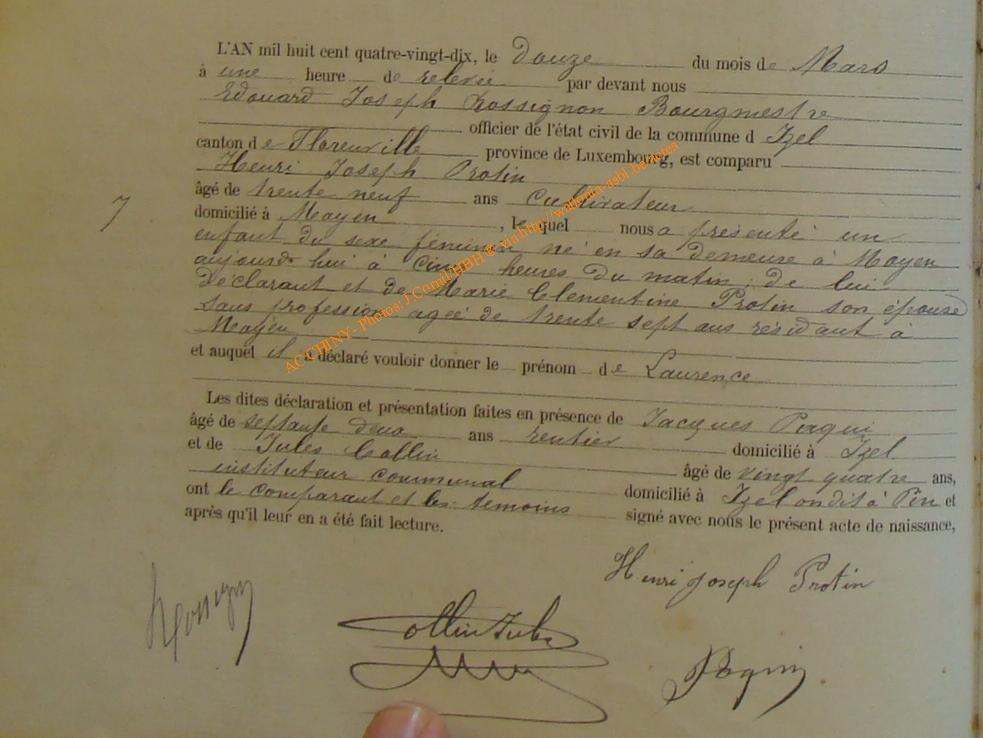 L'AN mil huit cent quatre-vingt-dix, le douze du mois de Mars
à une heure de relevée par devant nous
Edouard Joseph Rossignon Bourgmestre
officier de l'état civil de la commune d Izel
canton de Florenville province de Luxembourg, est comparu
Henri Joseph Protin
âgé de trente neuf ans Cultivateur
7
domicilié à Moyen, lequel nous a présenté un
enfant du sexe féminin né en sa demeure à Moyen
aujourd'hui à cinq heures du matin de lui
déclarant et de Marie Clémentine Protin son épouse
sans profession agée de trente sept ans residant à
Moyen
et auquel il a déclaré vouloir donner le prénom de Laurence
Les dites déclaration et présentation faites en présence de Jacques Paqui
âgé de septante deux ans rentier domicilié à Izel
et de Jules Collin âgé de vingt quatre ans,
instituteur communal domicilié à Izel ondit à Pin et
ont le comparant et les témoins signé avec nous le présent acte de naissance,
après qu'il leur en a été fait lecture.
Henri Joseph Protin
Collin Jules
AC CHINY - Photos J.Conal/HBH © via http://wallonia-asbl.be